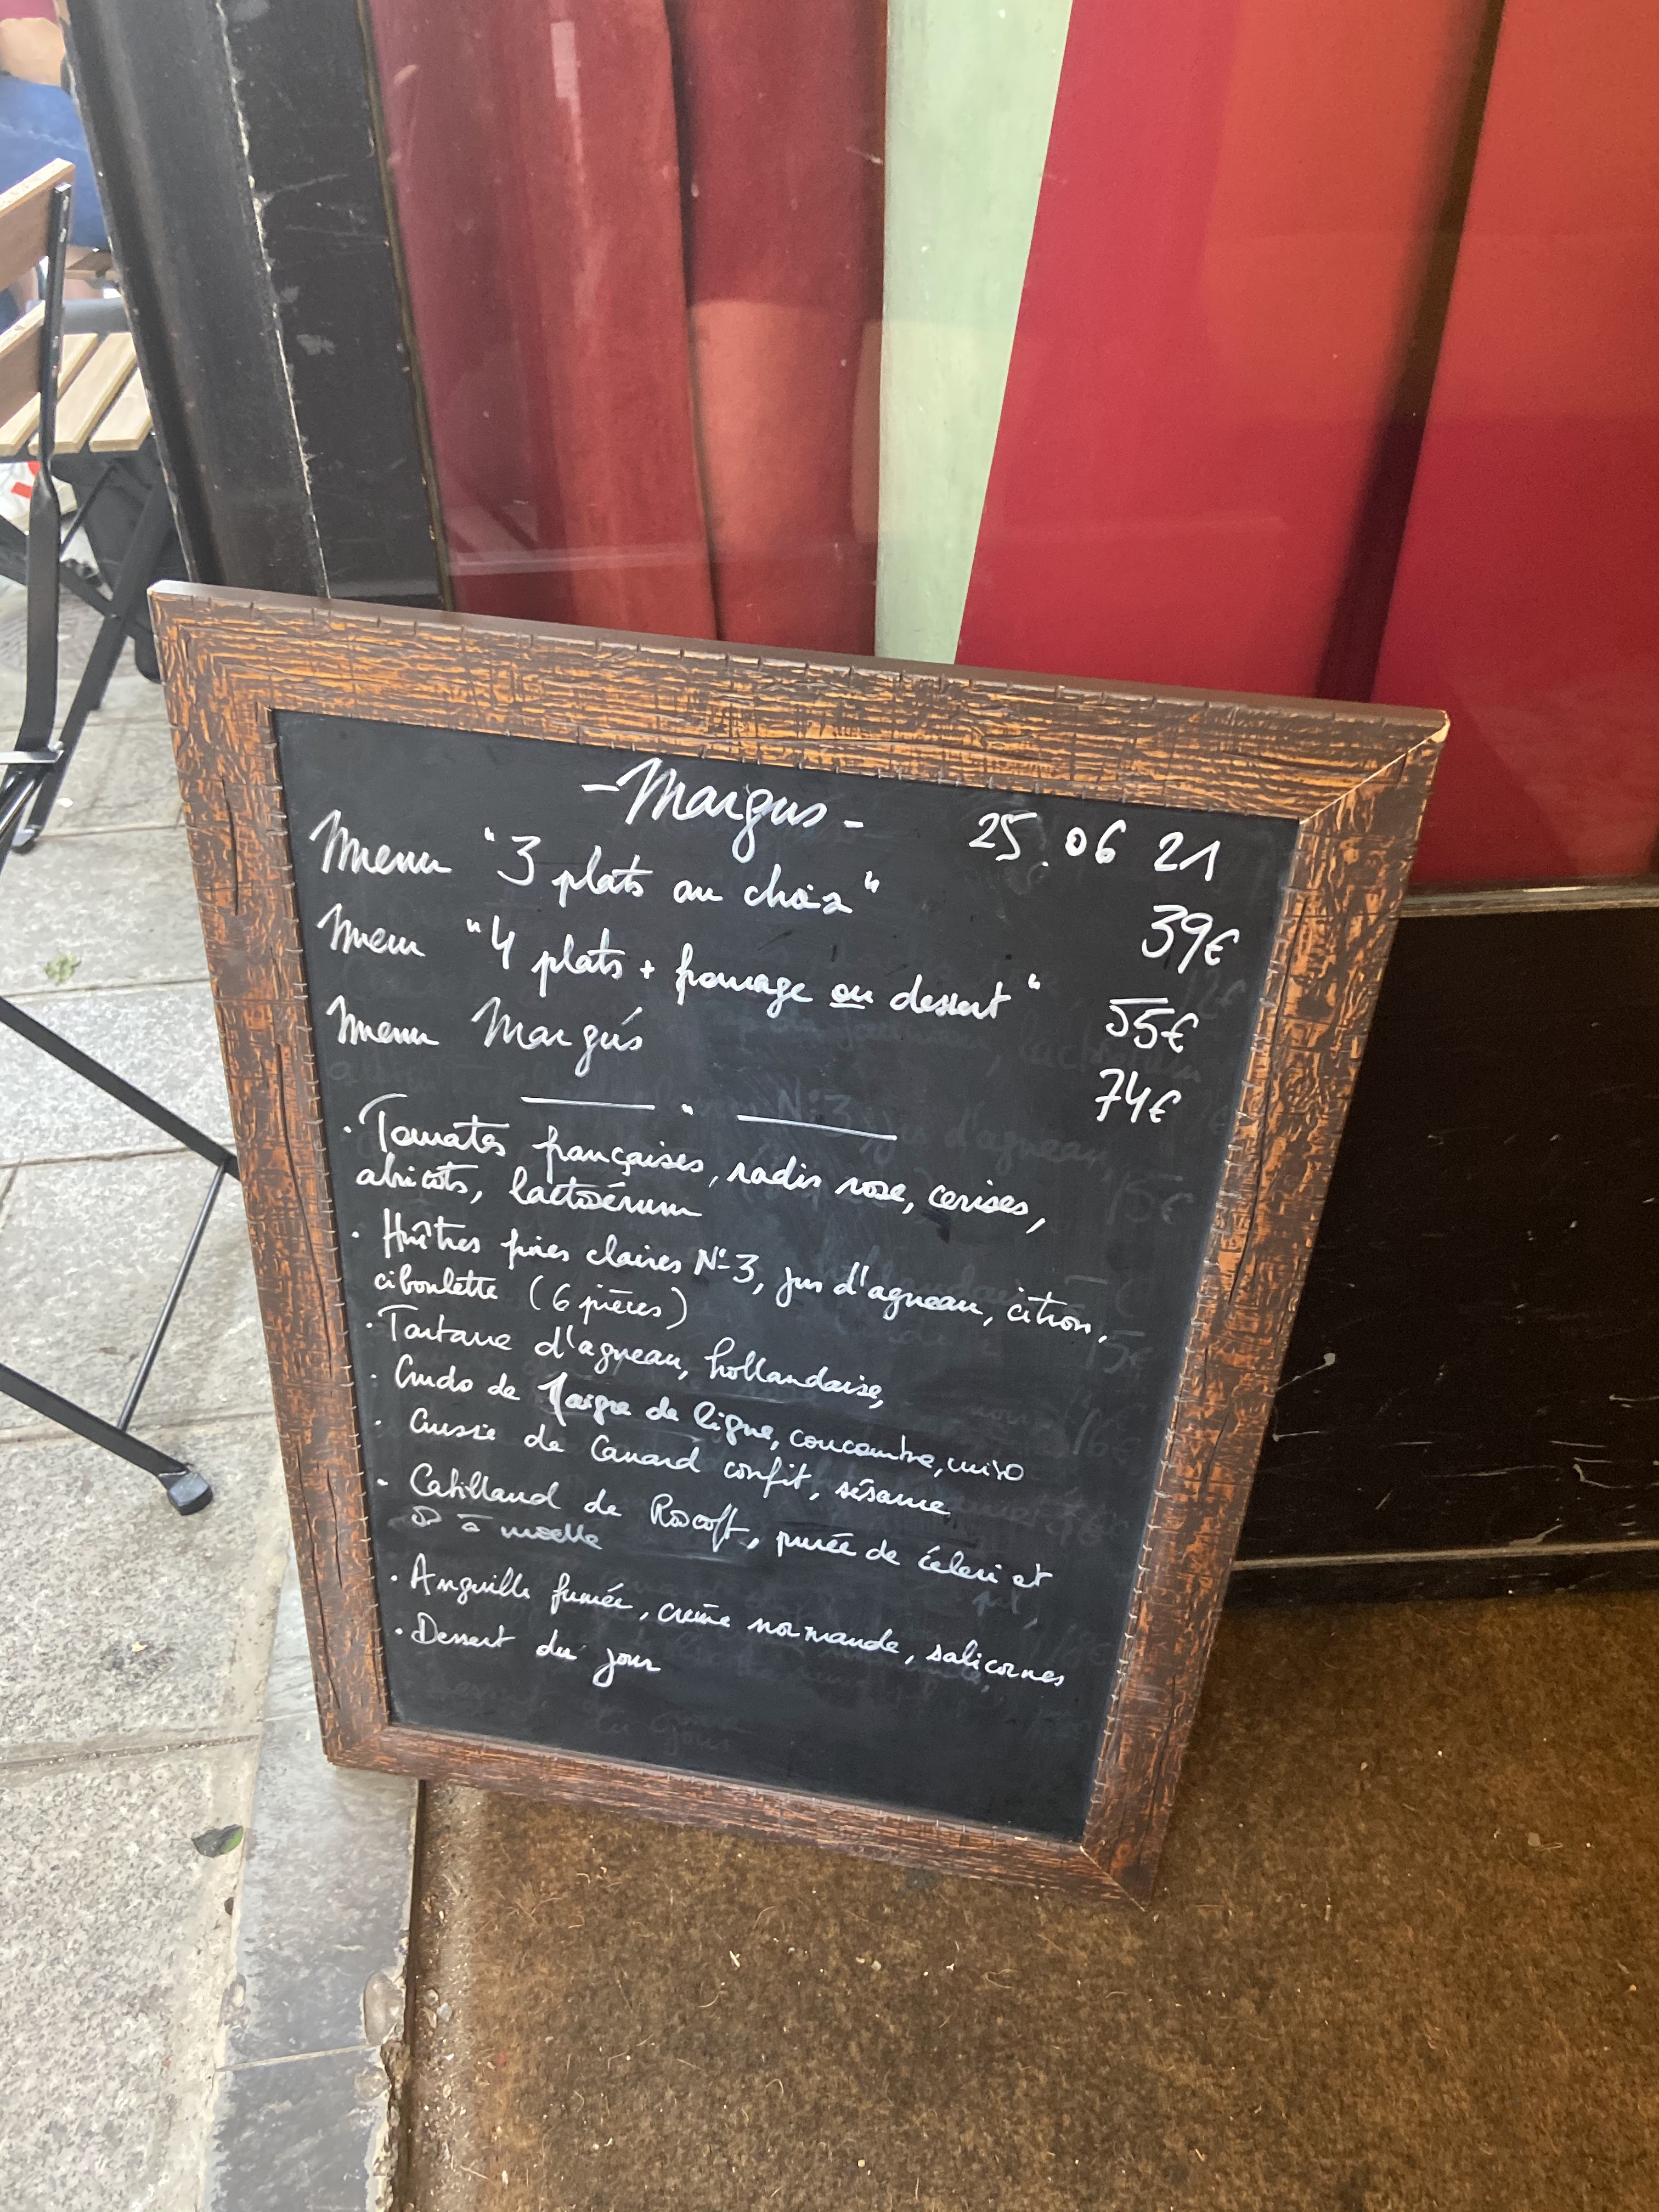 - Margus - 25.06 21
Menu "3 plats au choix" 39€
Menu "4 plats + fromage ou dessert" 55€
Menu Margus 74€
· Tomates françaises, radis rose, cerises,
abricots, lactosérum
· Huîtres fines claires N°3, jus d'agneau, citron,
ciboulette (6 pièces)
· Tartare d'agneau, hollandaise,
· Crudo de Maigre de ligne, concombre, miso
· Cuisse de Canard confit, sésame
· Cabillaud de Roscoff, purée de céleri et
à moelle
· Anguille fumée, crème normande, salicornes
· Dessert du jour